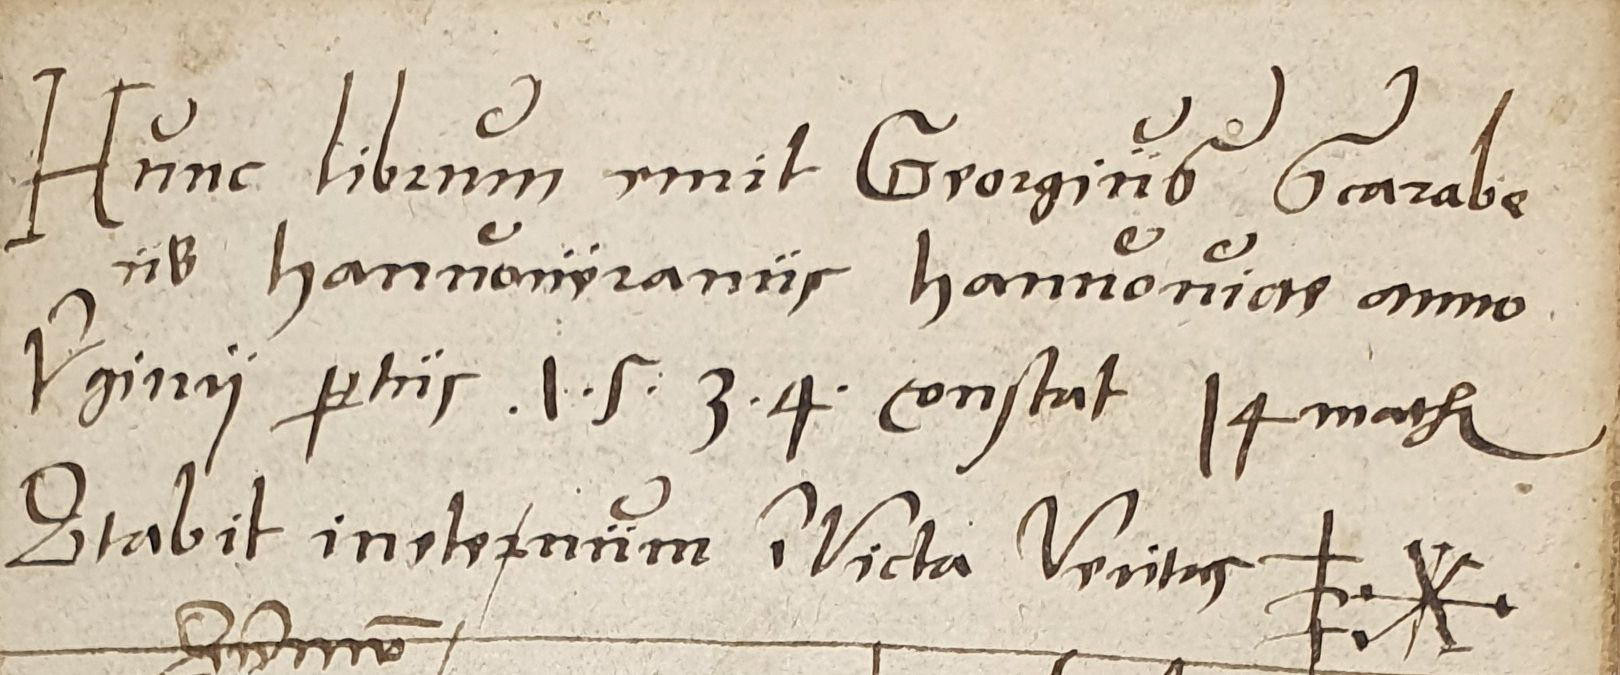 Hunc librum emit Georgius Scarabe
us hannoueranus hannouiae anno
Vginij ptus .1.5.3.4. constat 14 math
Stabit ineternum iVicta Veritas